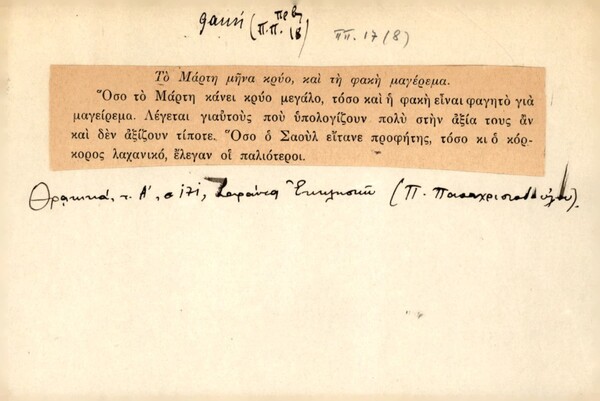 φακή (πρβ
π.π. 18) ππ. 17 (8)
Τὸ Μάρτη μῆνα κρύο, καὶ τὴ φακὴ μαγέρεμα.
Ὅσο τὸ Μάρτη κάνει κρύο μεγάλο, τόσο καὶ ἡ φακὴ εἶναι φαγητὸ γιὰ
μαγείρεμα. Λέγεται γιαὐτοὺς ποὺ ὑπολογίζουν πολὺ στὴν ἀξία τους ἂν
καὶ δὲν ἀξίζουν τίποτε. Ὅσο ὁ Σαοὺλ εἴτανε προφήτης, τόσο κι ὁ κόρ-
κορος λαχανικό, ἔλεγαν οἱ παλιότεροι.
Θρακικά, τ. Α', σ 171, Σαράντα Ἐκκλησιῶν (Π. Παπαχριστοδούλου).